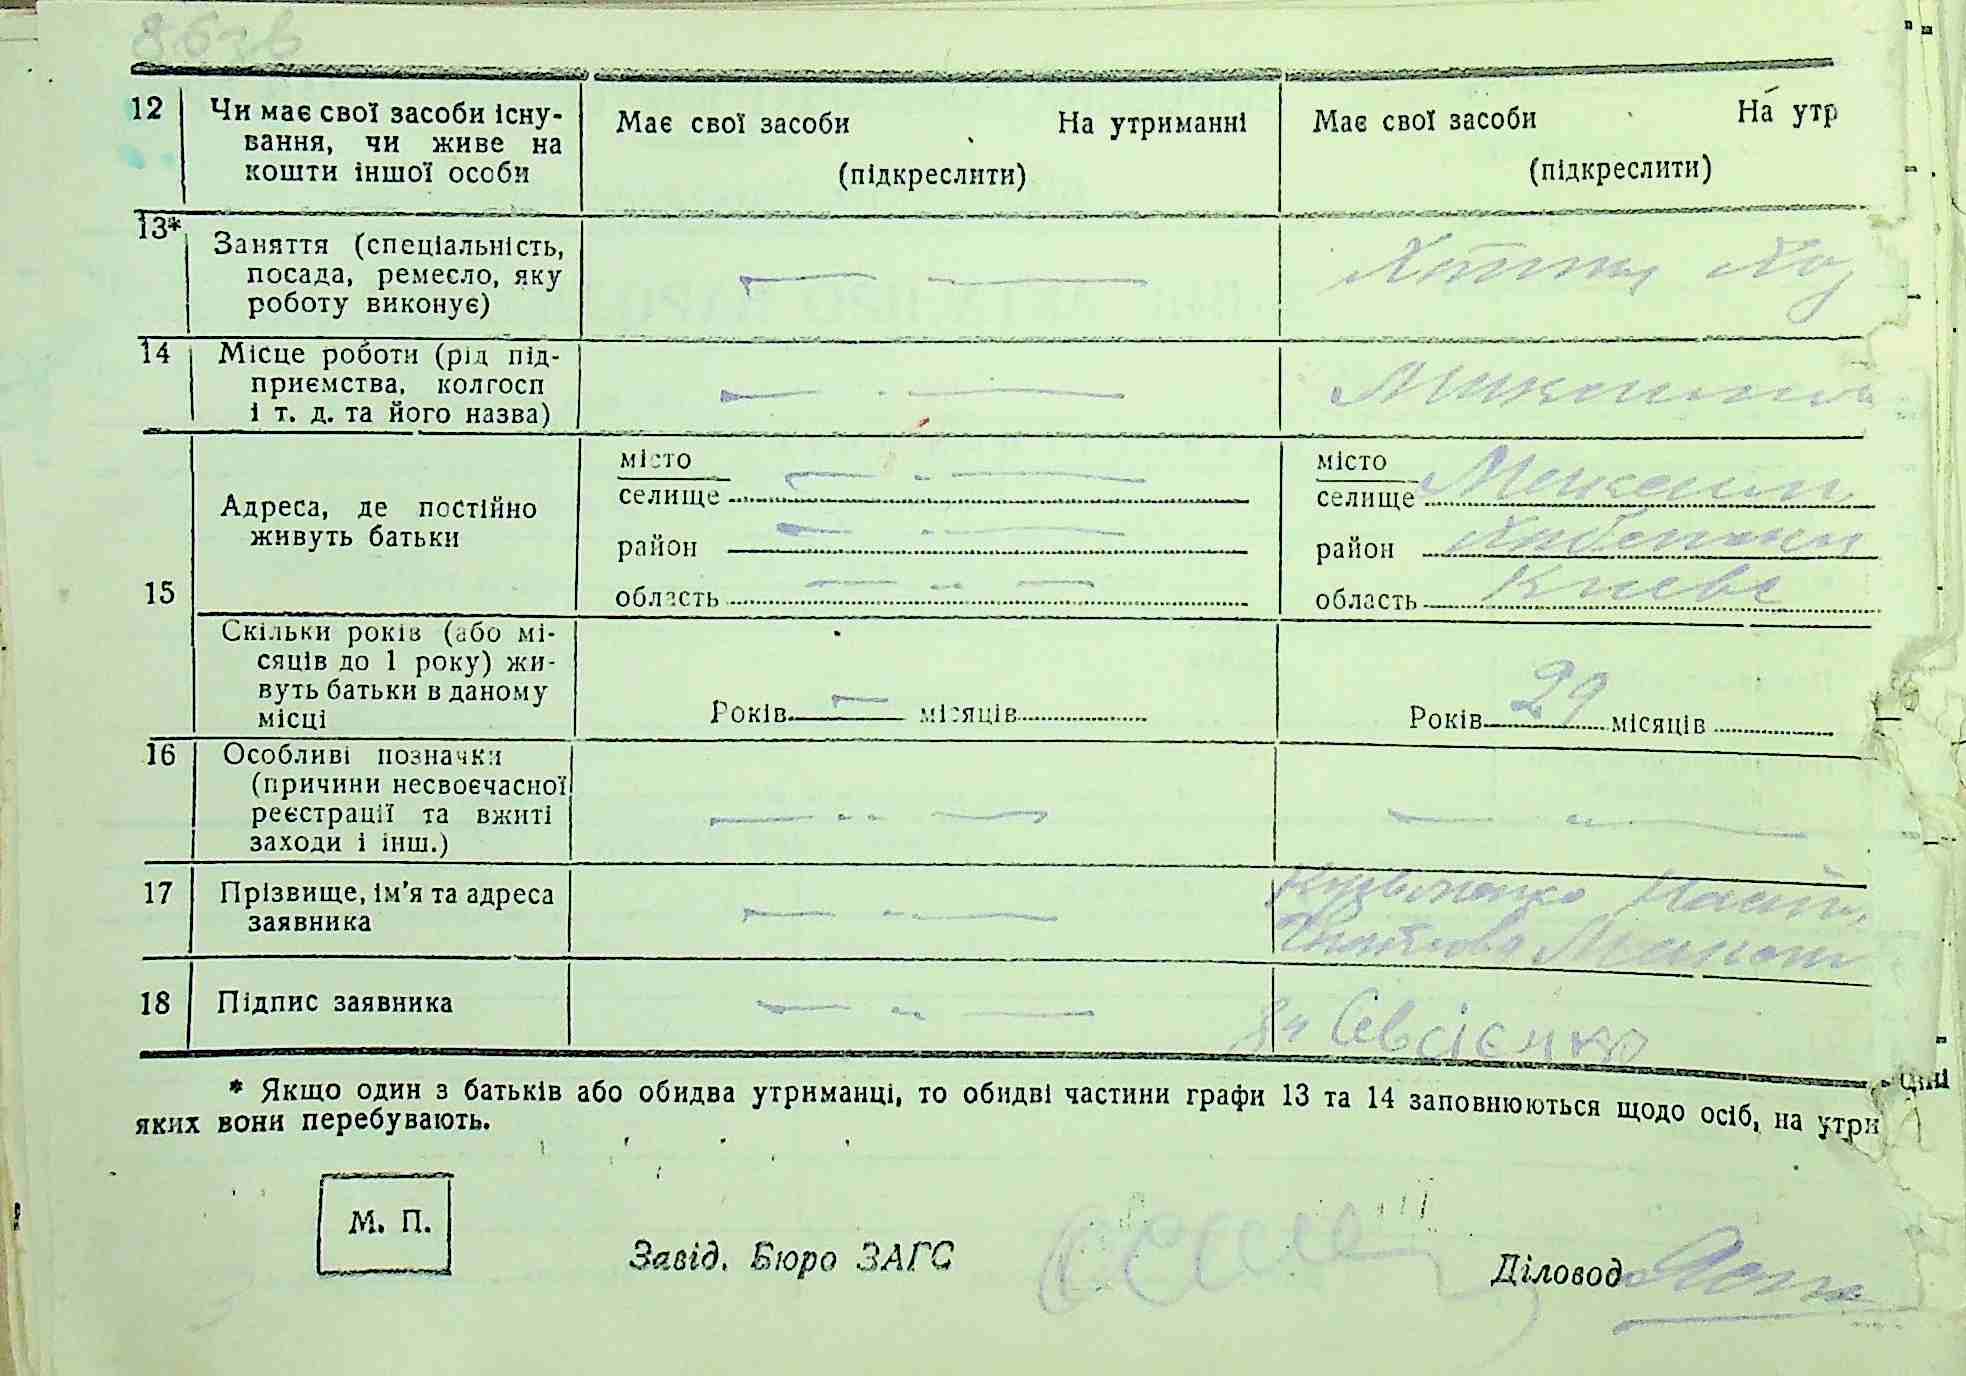 12 Чи має свої засоби існу-
вання, чи живе на
кошти іншої особи
Має свої засоби На утриманні
(підкреслити)
Має свої засоби На утр
(підкреслити)
13* Заняття (спеціальність,
посада, ремесло, яку
роботу виконує)
14 Місце роботи (рід під-
приємства, колгосп
і т. д. та його назва)
15 Адреса, де постійно
живуть батьки
місто
селище
район
область
місто
селище
район
область Києвс
Скільки років (або мі-
сяців до 1 року) жи-
вуть батьки в даному
місці
Років — місяців
Років 29 місяців
16 Особливі позначки
(причини несвоєчасної
реєстрації та вжиті
заходи і інш.)
17 Прізвище, ім'я та адреса
заявника
18 Підпис заявника
Євсієнко
* Якщо один з батьків або обидва утриманці, то обидві частини графи 13 та 14 заповнюються щодо осіб, на утри
яких вони перебувають.
М. П.
Завід. Бюро ЗАГС
Діловод